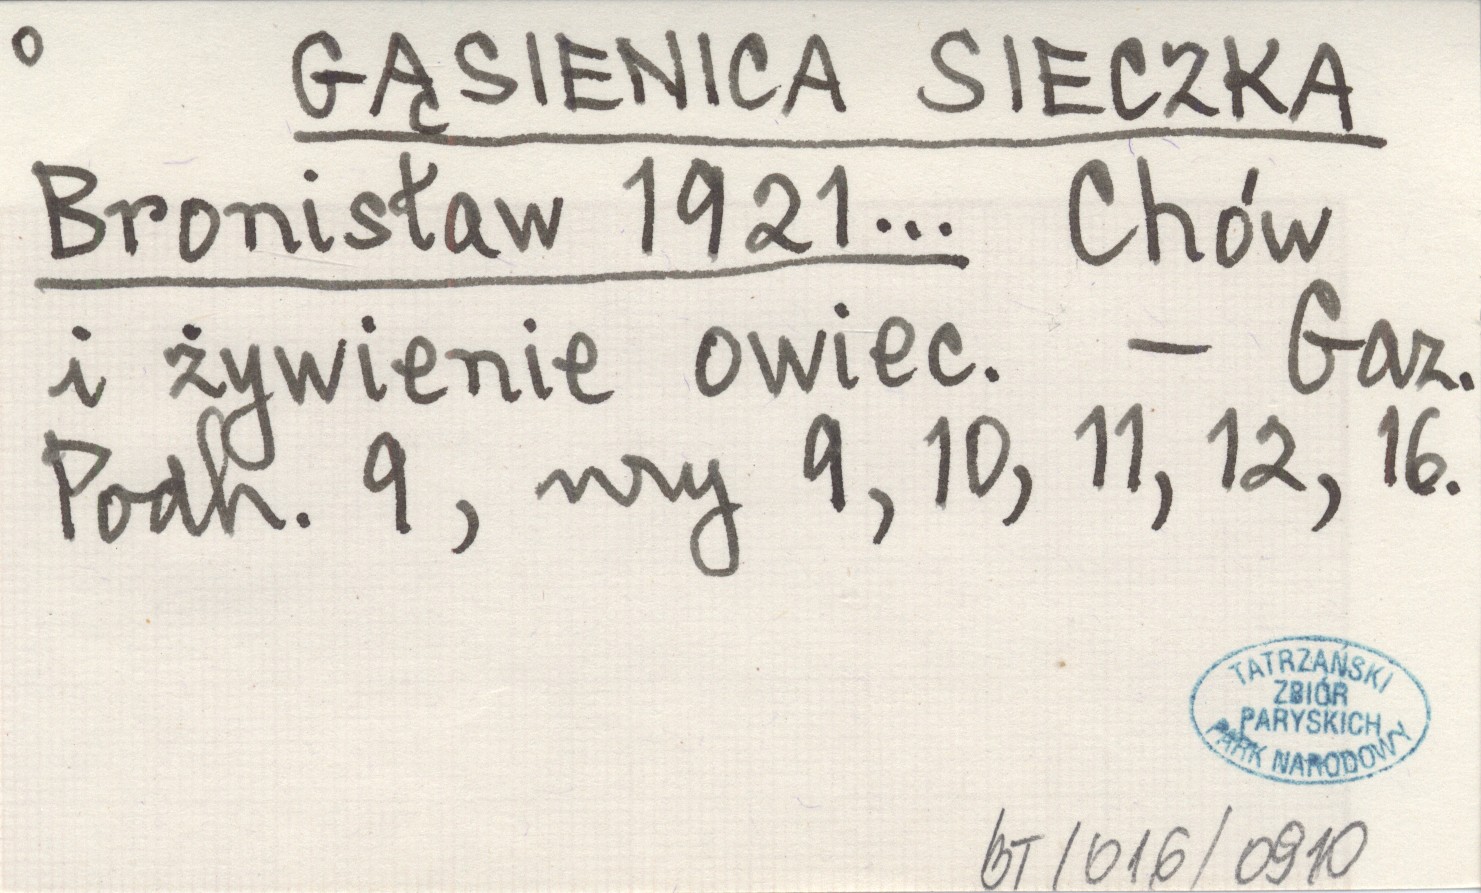 ° GĄSIENICA SIECZKA
Bronisław 1921... Chów
i żywienie owiec. — Gaz.
Podh. 9, nry 9, 10, 11, 12, 16.
TATRZAŃSKI
ZBIÓR
PARYSKICH
PARK NARODOWY
BT/016/0910